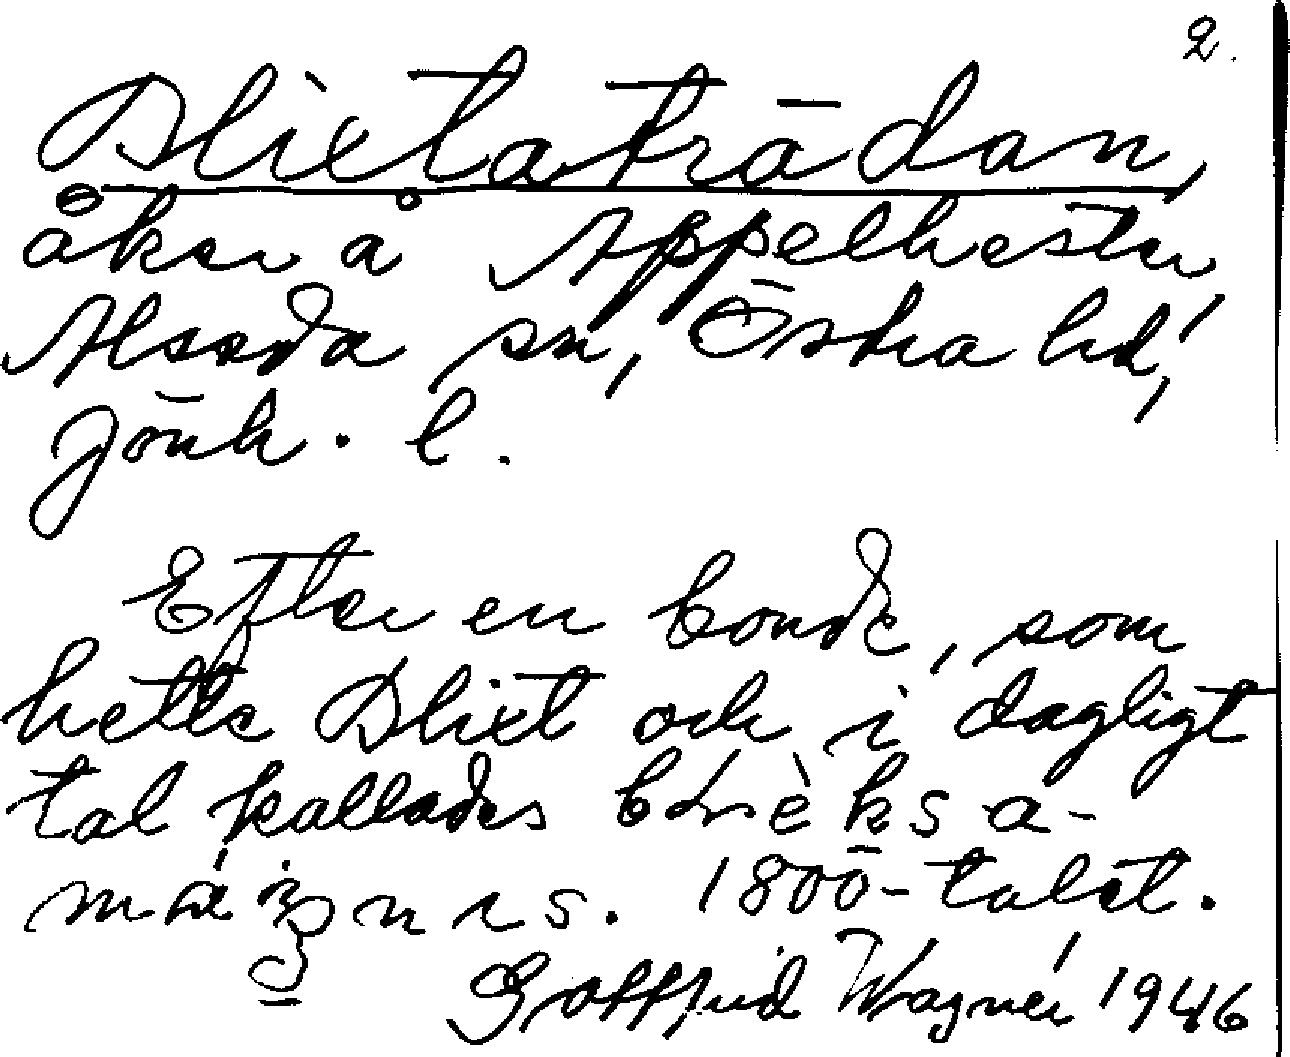 2.
Slixtaträdan,
åker å Äppelhester,
Alseda sn, Östra hd,
Jönk. l.
Efter en bonde, som
hette Slixt och i dagligt
tal kallades
1800-talet.
Gottfrid Wagnér 1946